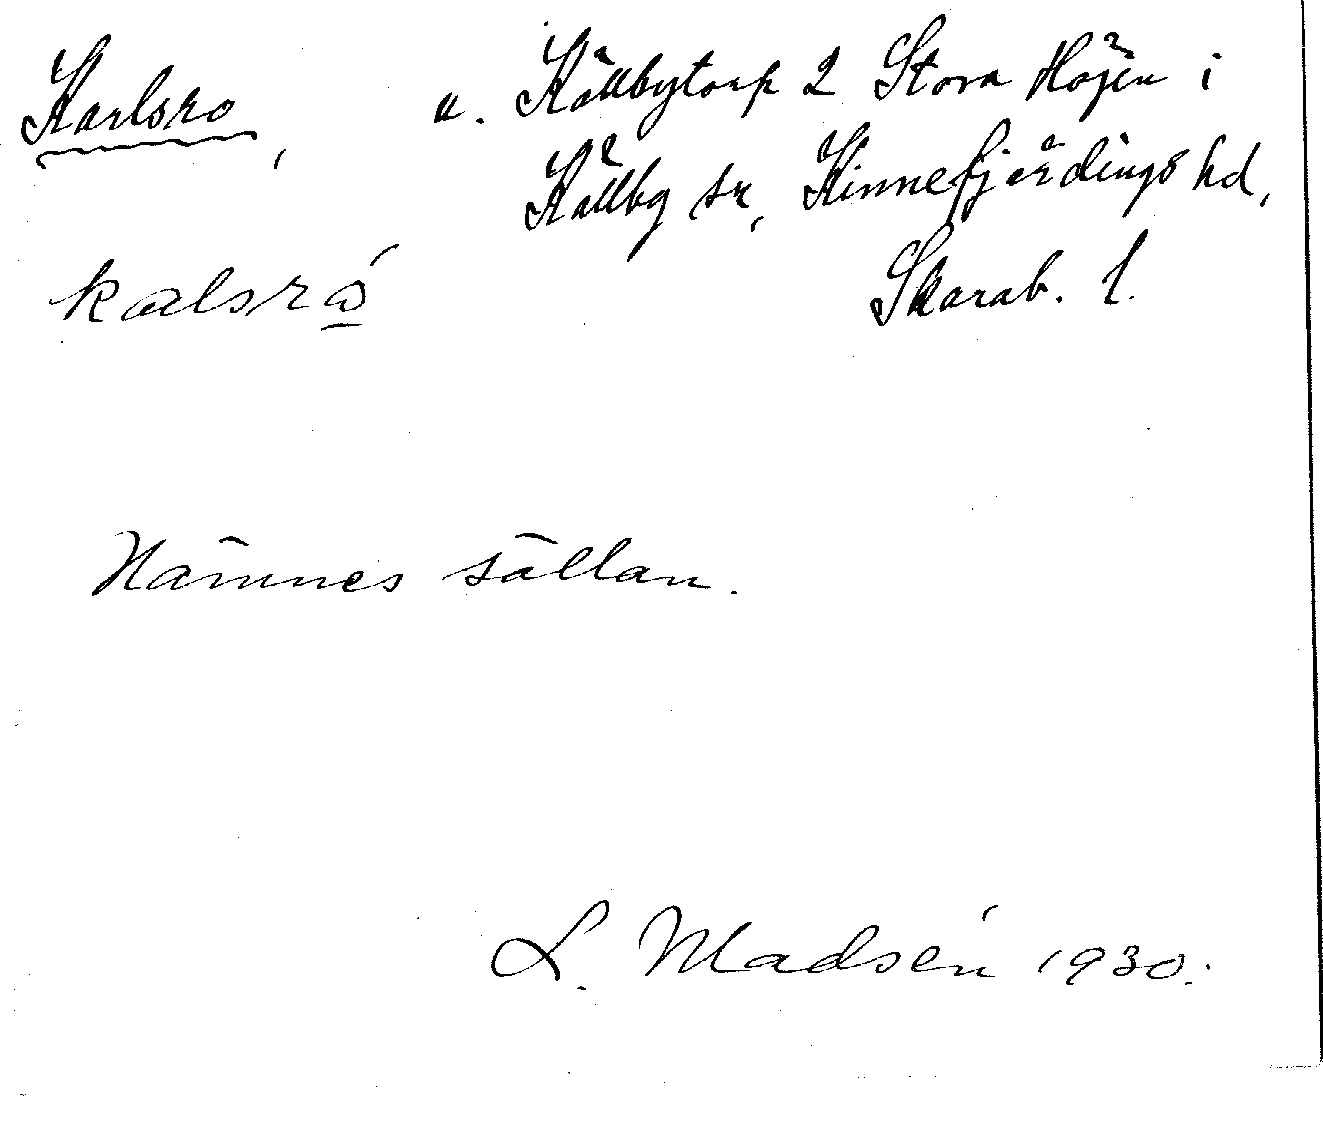 Karlsro, u. Källbytorp 2 Stora Höjen i
Källby sn, Kinnefjärdings hd,
Skarab. l.
kalsrǻ
Nämnes sällan.
L. Madsén 1930.